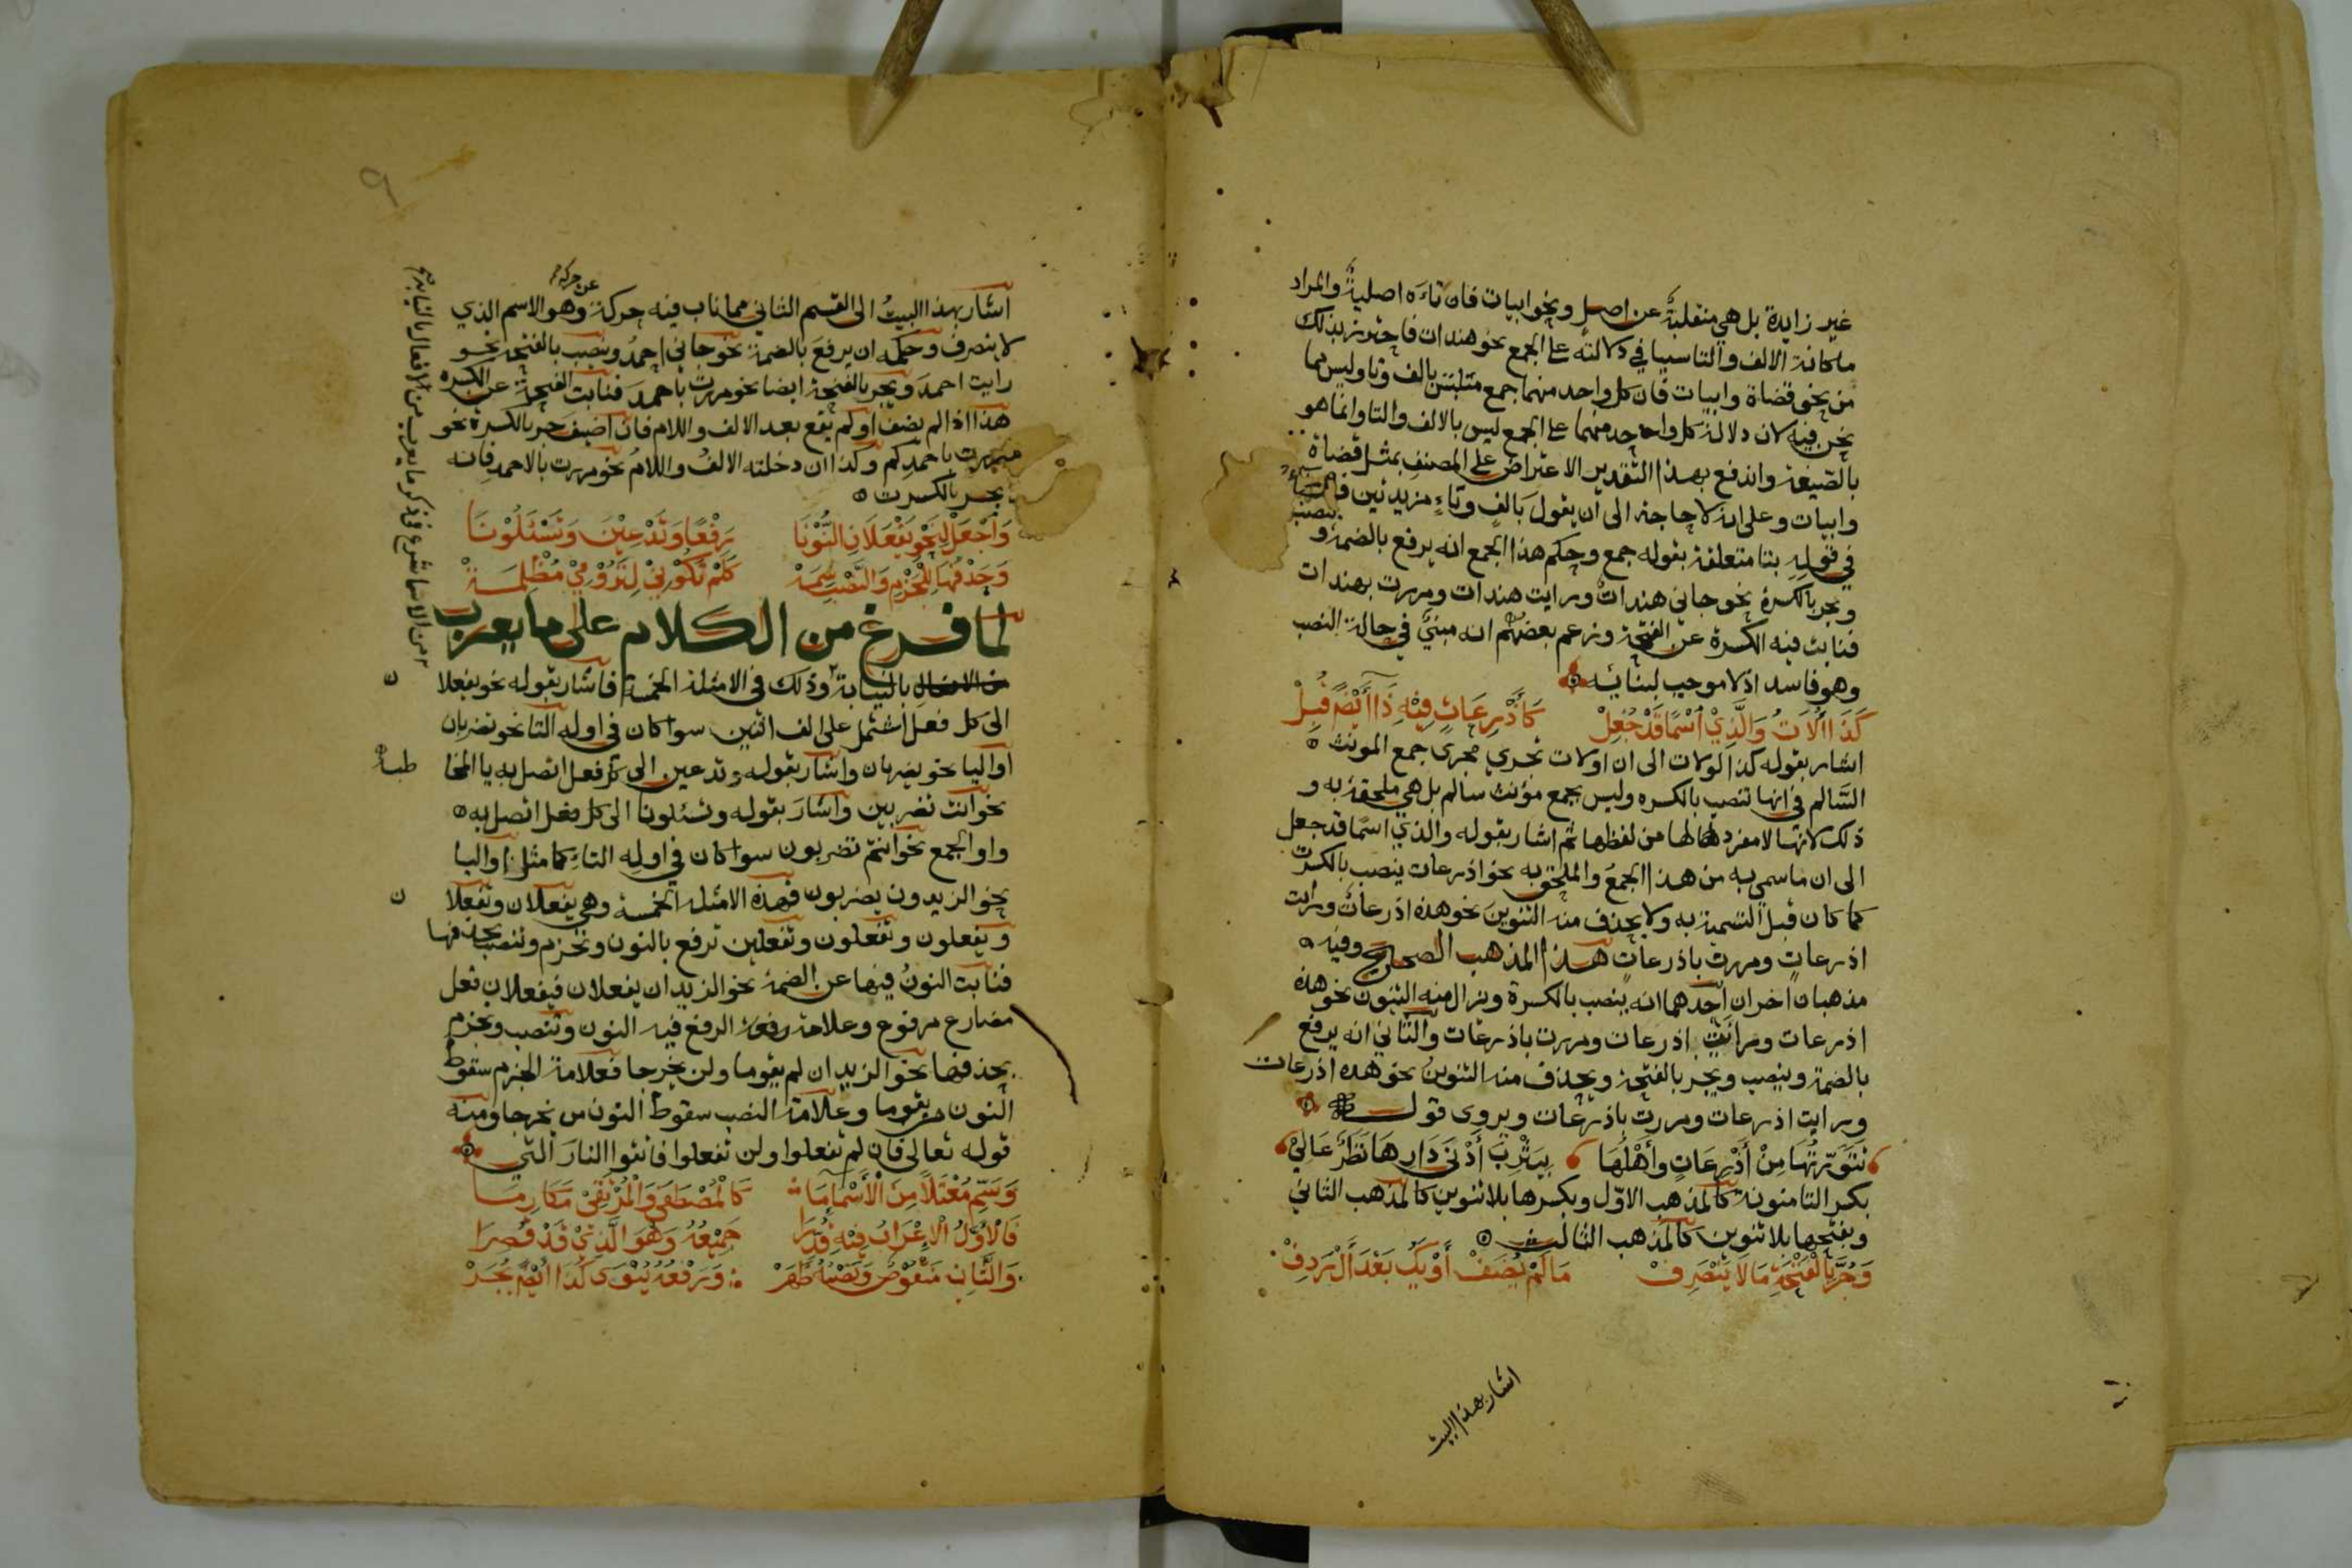 غير زايدة بل هي منقلبة عن اصل ونحو ابيات فان تاءه اصلية والمراد
ما كانت الالف والتا سببا في دلالته على الجمع نحو هندات فاحترز بذلك
من نحو قضاة وابيات فان كل واحد منهما جمع متلبس بالف وتا وليس مما
نحن فيه لان دلالة كل واحد منهما على الجمع ليس بالالف والتا وانما هو
بالصيغة واندفع بهذا التقدير الاعتراض على المصنف بمثل قضاة
وابيات وعلى انه لا حاجة الى ان يقول بالف وتاء مزيدتين فالباء
في قوله بتا متعلقة بقوله جمع وحكم هذا الجمع انه يرفع بالضمة و ينصب
ويجر بالكسرة نحو جاتني هندات ورايت هندات ومررت بهندات
فنابت فيه الكسرة عن الفتحة وزعم بعضهم انه مبني في حالة النصب
وهو فاسد اذ لا موجب لبنائه
كَذَا اُلَاتُ وَالَّذِيْ اسْمًا قَدْ جُعِلْ كَأَذْرِعَاتٍ فِيْهِ ذَا أَيْضًا قُبِلْ
اشار بقوله كذا اولات الى ان اولات تجري مجرى جمع المونث
السالم في انها تنصب بالكسره وليس بجمع مؤنث سالم بل هي ملحقة به و
ذلك لانها لا مفرد لها من لفظها ثم اشار بقوله والذي اسما قد جعل
الى ان ما سمي به من هذا الجمع والملحق به نحو اذرعات ينصب بالكسرة
كما كان قبل التسمية به ولا يحذف منه التنوين نحو هذه اذرعات ورايت
اذرعات ومررت باذرعات هذا المذهب الصحيح وفيه
مذهبان اخران احدهما انه ينصب بالكسرة ويزال منه التنوين نحو هذه
اذرعات ورأيت اذرعات ومررت باذرعات والثاني انه يرفع
بالضمة وينصب ويجر بالفتحة ويحذف منه التنوين نحو هذه اذرعات
ورايت اذرعات ومررت باذرعات ويروى قول
تَنَوَّرْتُهَا مِنْ أَذْرِعَاتٍ وَأَهْلُهَا بِيَثْرِبَ أَدْنَى دَارِهَا نَظَرٌ عَالِيْ
بكسر التا منونة كالمذهب الاوّل وبكسرها بلا تنوين كالمذهب الثاني
وبفتحها بلا تنوين كالمذهب الثالث
وَجُرَّ بِالْفَتْحَةِ مَا لَا يَنْصَرِفْ مَا لَمْ يُضَفْ أَوْ يَكُ بَعْدَ أَلْ رَدِفْ
اشار بهذا البيت
٩
اشار بهذا البيت الى القسم الثاني مما ناب فيه حركة عن حركة وهو الاسم الذي
لا ينصرف وحكمه ان يرفع بالضمة نحو جاني احمد وينصب بالفتحة نحو
رايت احمد ويجر بالفتحة ايضا نحو مررت باحمد فنابت الفتحة عن الكسره
هذا اذا لم يضف او لم يقع بعد الالف واللام فان اضيف جر بالكسرة نحو
مررت باحمدكم وكذا ان دخلته الالف واللام نحو مررت بالاحمد فانه
يجر بالكسرة
وَاجْعَلْ لِنَحْوِ يَفْعَلَانِ النُّوْنَا رَفْعًا وَتَدْعِيْنَ وَتَسْئَلُوْنَا
وَحَذْفُهَا لِلْجَزْمِ وَالنَّصْبِ سِمَهْ كَلَمْ تَكُوْنِيْ لِتَرُوْمِيْ مَظْلَمَهْ
لما فرغ من الكلام على ما يعرب
من الاسما شرع في ذكر ما يعرب من الافعال بالنيابة
من الافعال بالنيابة وذلك في الامثلة الخمسة فاشار بقوله نحو يفعلا ن
الى كل فعل اشتمل على الف اثنين سواء كان في اوله التا نحو تضربان
او اليا نحو يضربان واشار بقوله وتدعين الى كل فعل اتصل به يا المخا طبة
نحو انت تضربين واشار بقوله وتسئلونا الى كل فعل اتصل به
واو الجمع نحو انتم تضربون سواء كان في اوله التاء كما مثل او اليا
نحو الزيدون يضربون فهذه الامثلة الخمسة وهي يفعلان وتفعلا ن
ويفعلون وتفعلون وتفعلين ترفع بالنون وتجزم وتنصب بحذفها
فنابت النون فيها عن الضمة نحو الزيدان يفعلان فيفعلان فعل
مضارع مرفوع وعلامة الرفع فيه النون وتنصب وتجزم
بحذفها نحو الزيدان لم يقوما ولن يخرجا فعلامة الجزم سقوط
النون من يقوما وعلامة النصب سقوط النون من يخرجا ومنه
قوله تعالى فان لم تفعلوا ولن تفعلوا فاتقوا النار التي
وَسَمِّ مُعْتَلًّا مِنَ الْأَسْمَاءِ مَا كَالْمُصْطَفَى وَالْمُرْتَقِيْ مَكَارِمَا
فَالْأَوَّلُ الْإِعْرَابُ فِيْهِ قُدِّرَا جَمِيْعُهُ وَهُوَ الَّذِيْ قَدْ قُصِرَا
وَالثَّانِ مَنْقُوْصٌ وَنَصْبُهُ ظَهَرْ وَرَفْعُهُ يُنْوَى كَذَا أَيْضًا يُجَرْ